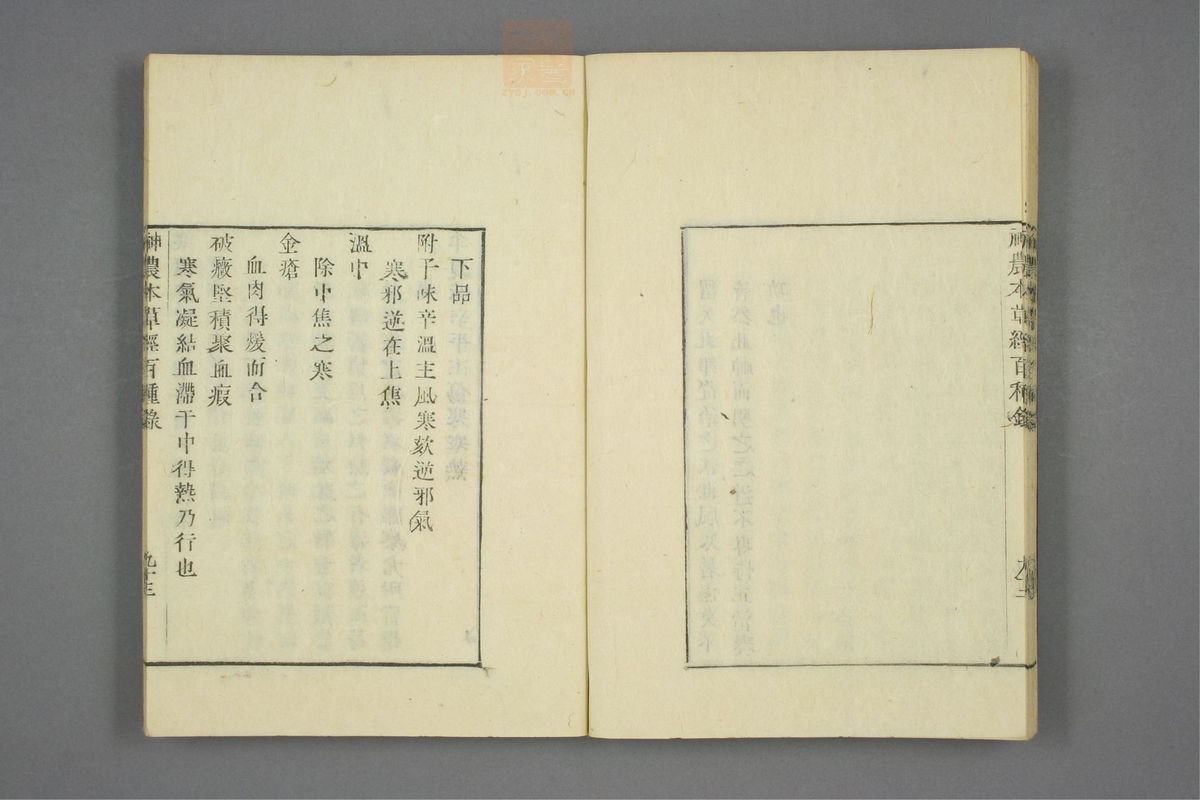 神農本草經百種錄
下品
附子味辛溫主風寒欬逆邪氣
寒邪逆在上焦
溫中
除中焦之寒
金瘡
血肉得煖而合
破癥堅積聚血瘕
寒氣凝結血滯于中得熱乃行也
神農本草經百種錄
九十三
zysj.com.cn